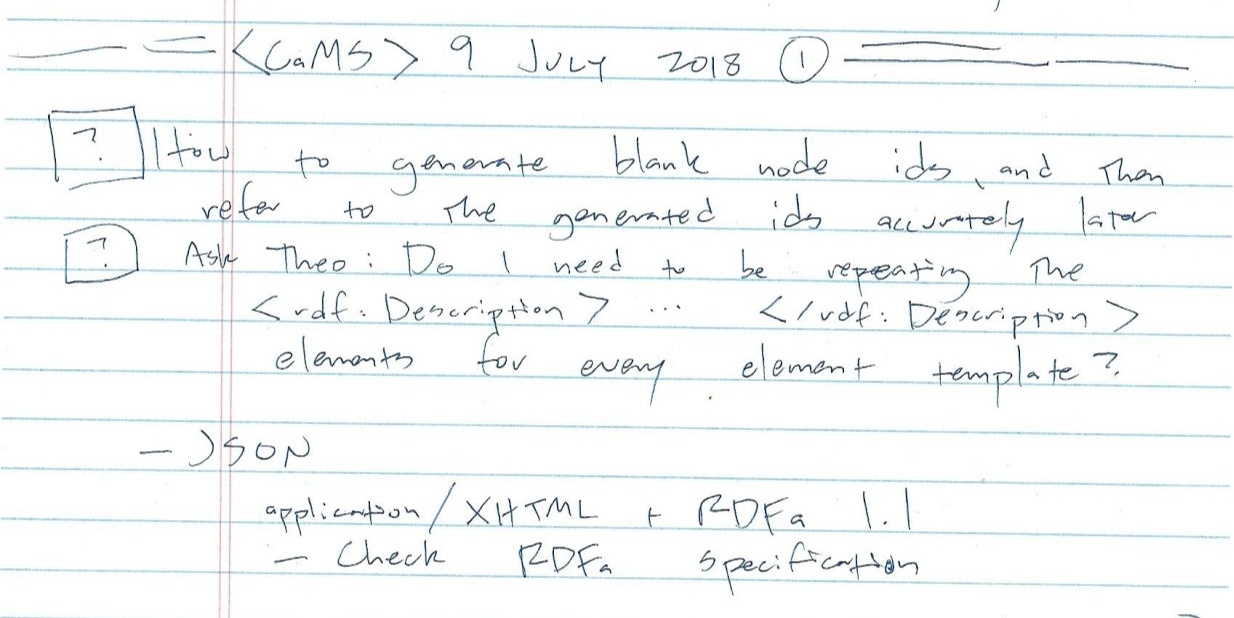 <CaMS> 9 July 2018 ①
? How to generate blank node ids, and then
refer to the generated ids accurately later
? Ask Theo: Do I need to be repeating the
<rdf: Description> ... </rdf: Description>
elements for every element template?
— JSON
application/XHTML + RDFa 1.1
— Check RDFa specification